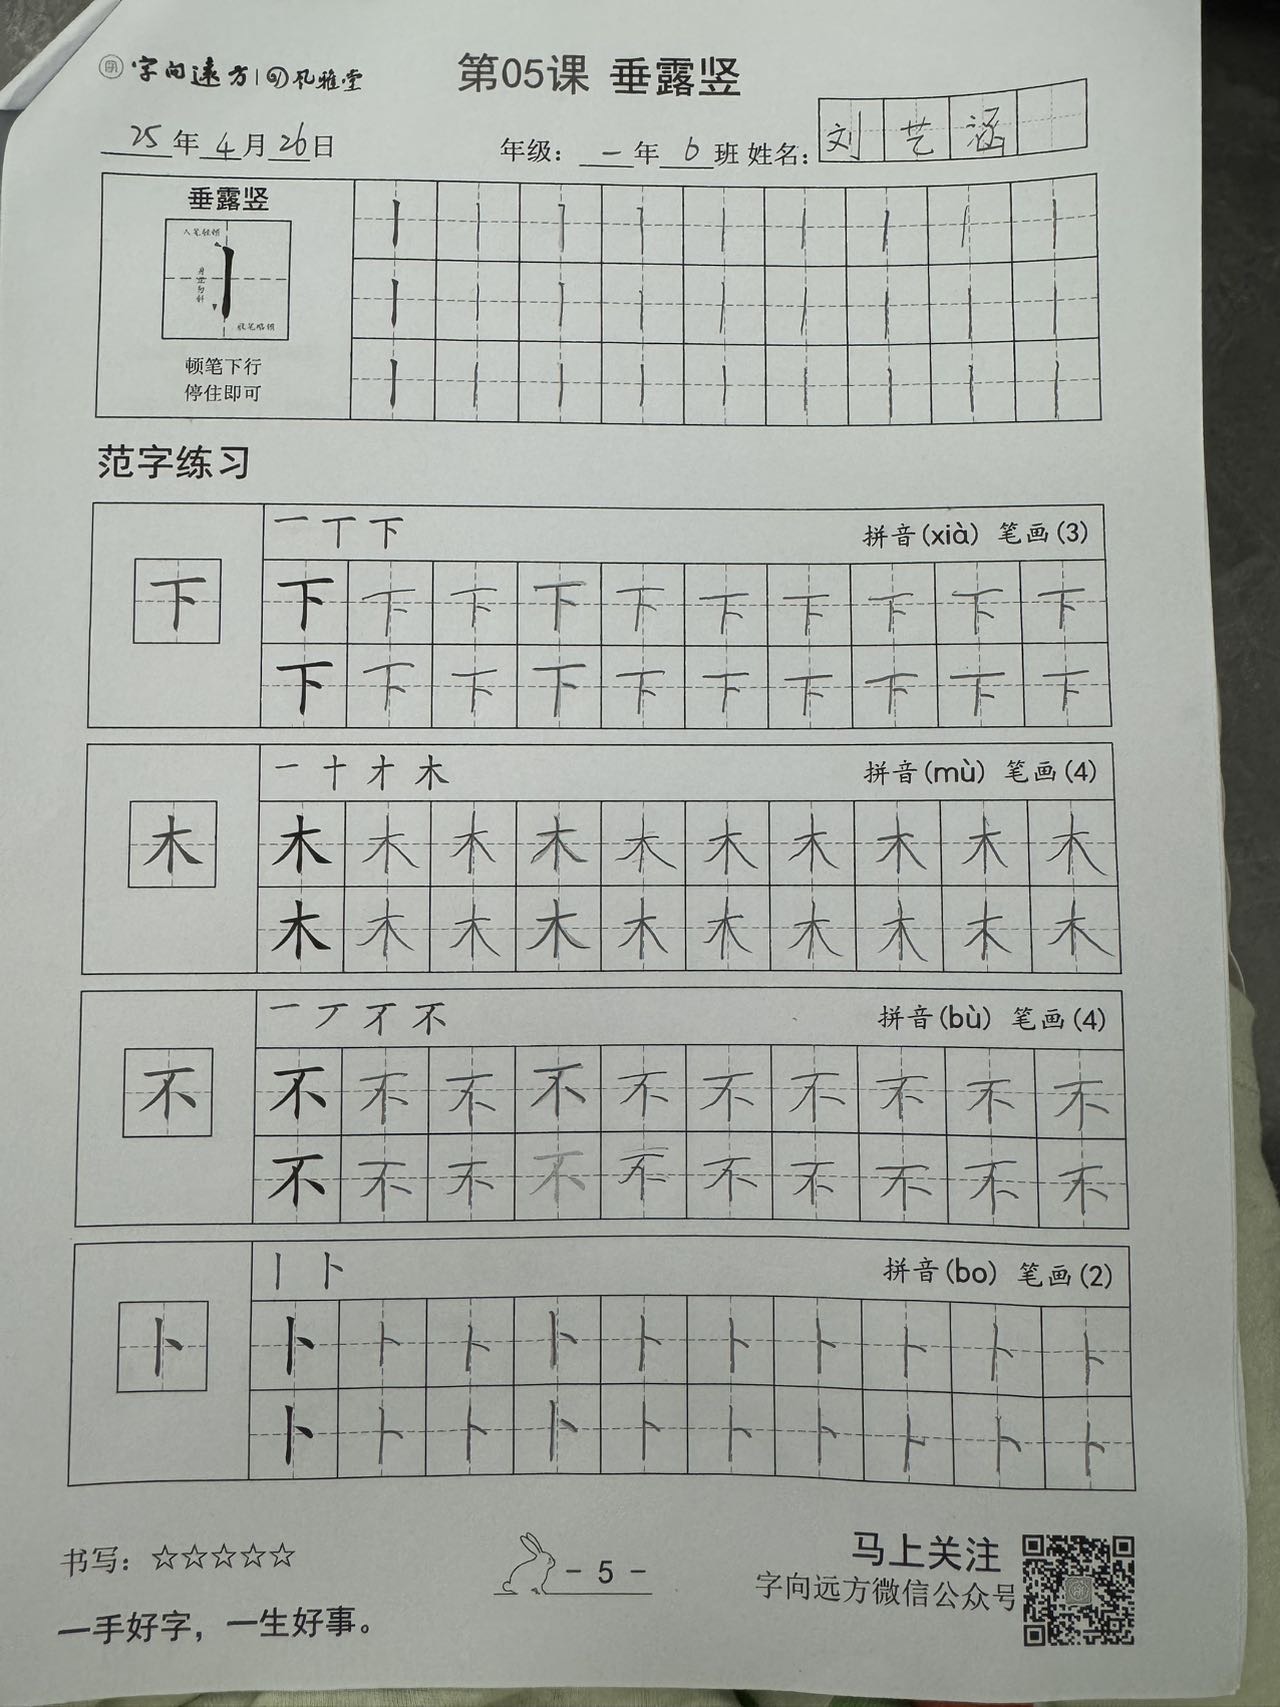 字向远方 孔雅堂
第05课 垂露竖
25年4月26日 年级：一年6班 姓名：刘艺涵
垂露竖
入笔轻顿
收笔略顿
顿笔下行
停住即可
范字练习
一丅下 拼音(xià) 笔画(3)
下 下 下 下 下 下 下 下 下 下 下
下 下 下 下 下 下 下 下 下 下
一十才木 拼音(mù) 笔画(4)
木 木 木 木 木 木 木 木 木 木 木
木 木 木 木 木 木 木 木 木 木
一丆不 拼音(bù) 笔画(4)
不 不 不 不 不 不 不 不 不 不 不
不 不 不 不 不 不 不 不 不 不
丨卜 拼音(bo) 笔画(2)
卜 卜 卜 卜 卜 卜 卜 卜 卜 卜 卜
卜 卜 卜 卜 卜 卜 卜 卜 卜 卜
书写：☆☆☆☆☆
- 5 -
马上关注
字向远方微信公众号
一手好字，一生好事。